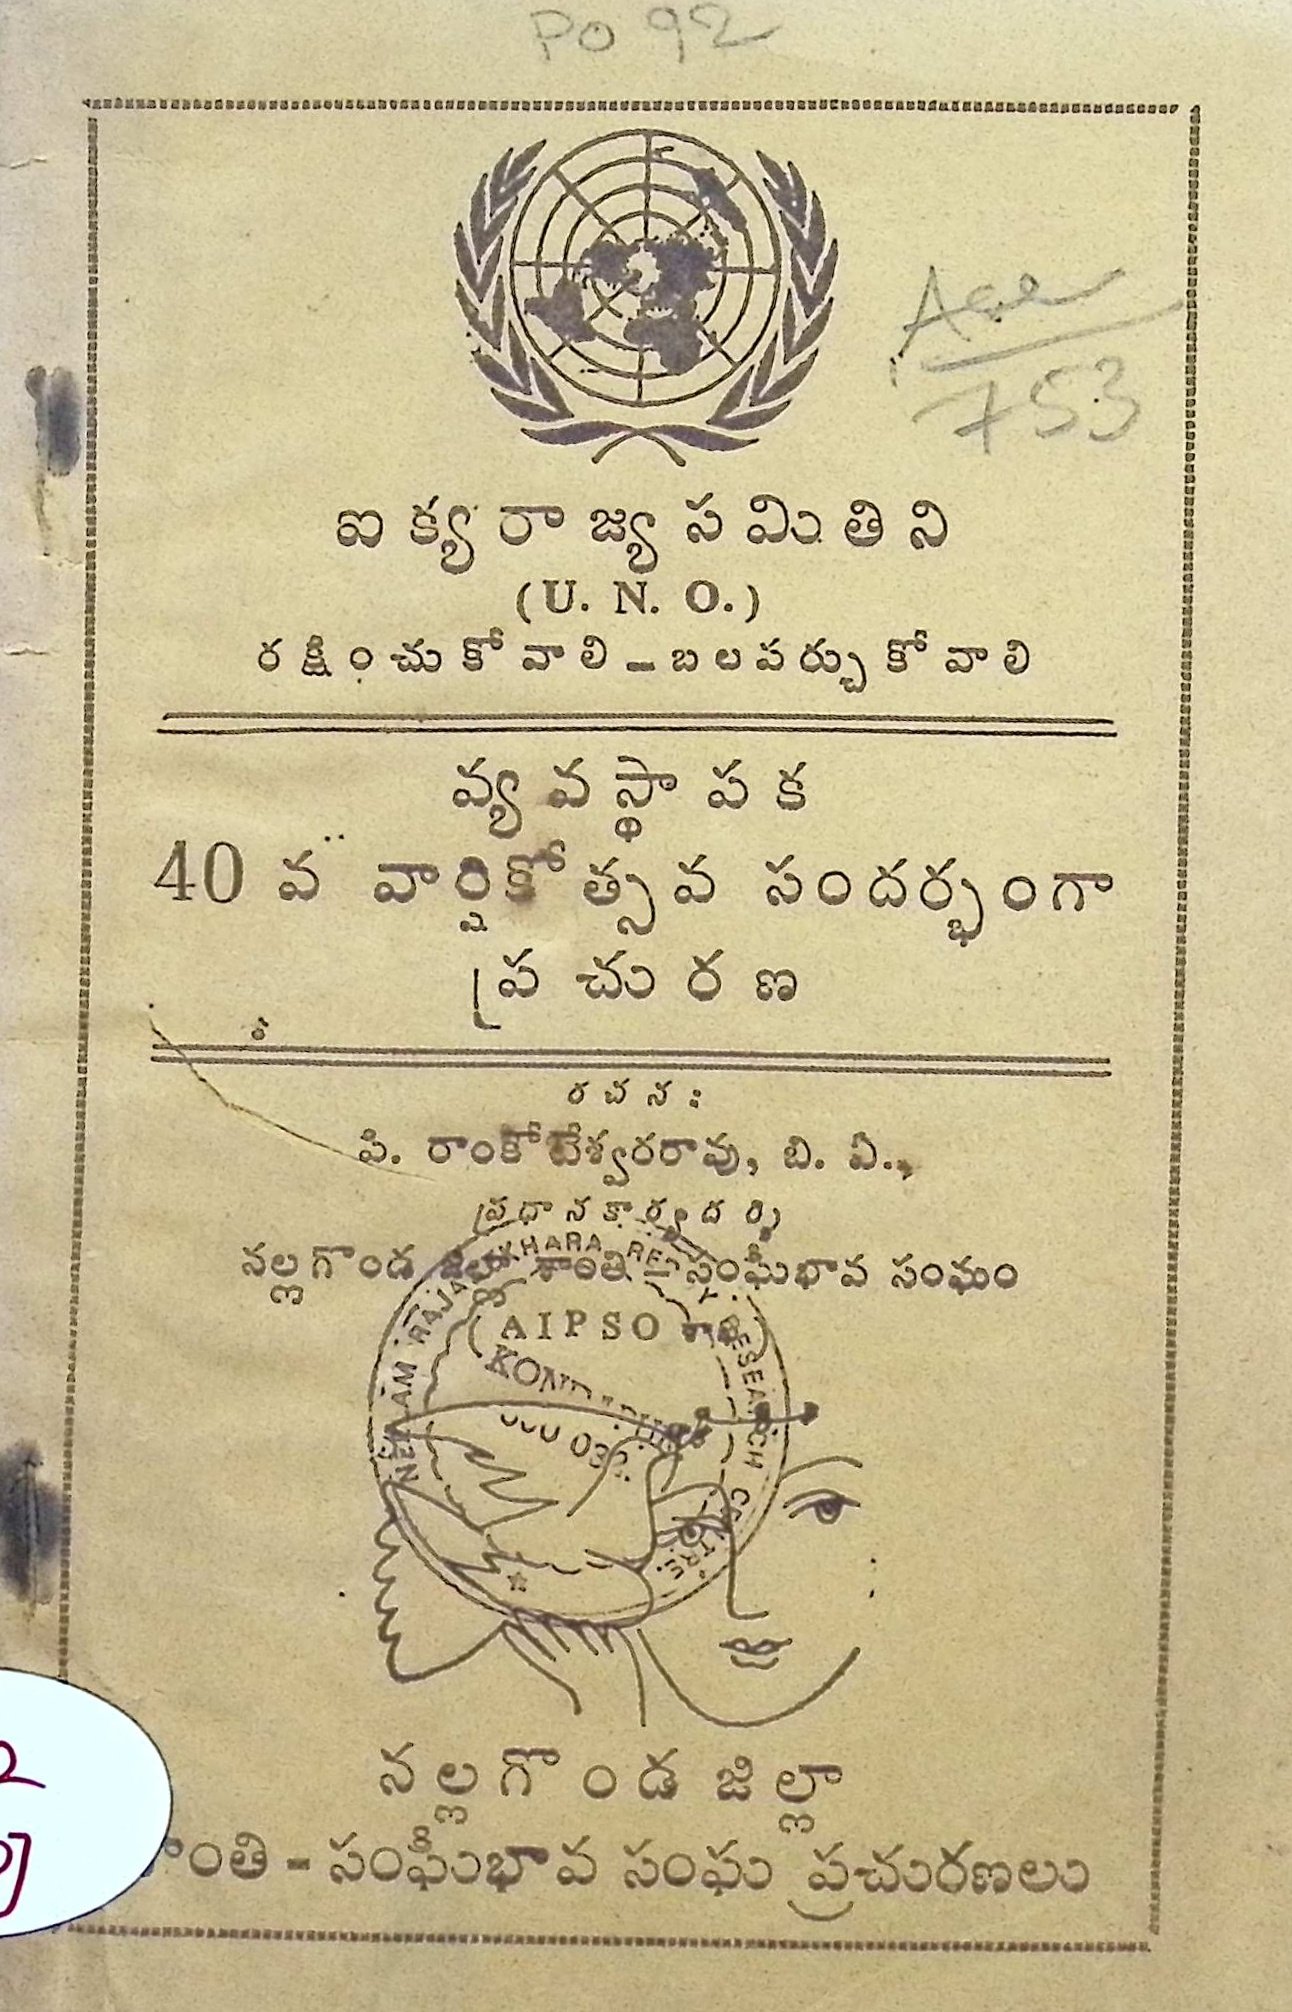 PO 92
Acc
753
ఐక్యరాజ్యసమితిని
(U. N. O.)
రక్షించుకోవాలి - బలపర్చుకోవాలి
వ్యవస్థాపక
40 వ వార్షికోత్సవ సందర్భంగా
ప్రచురణ
రచన :
పి. రాంకోటేశ్వరరావు, బి. ఏ.,
ప్రధానకార్యదర్శి
నల్లగొండ జిల్లా శాంతి - సంఘీభావ సంఘం
( AIPSO శాఖ )
NEELAM RAJASEKHARA REDDY RESEARCH CENTRE
నల్లగొండ జిల్లా
శాంతి - సంఘీభావ సంఘ ప్రచురణలు